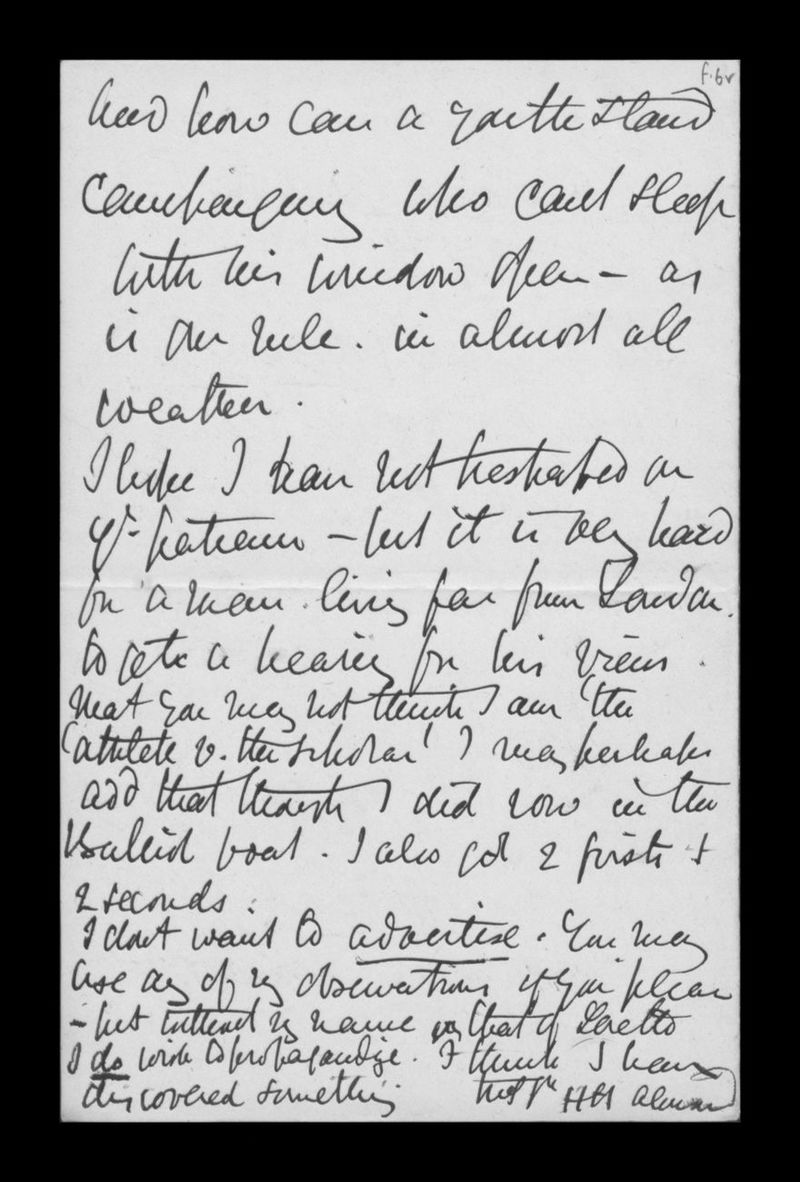 f.6r
And how can a youth stand
campaigning who cant sleep
with his window open – as
is our rule. in almost all
weather.
I hope I have not trespassed on
yr. patience – but it is very hard
for a man living far from London.
to get a hearing for his views.
That you may not think I am 'the
'athlete v. the scholar' I may perhaps
add that though I did row in the
Balliol boat. I also got 2 firsts &
2 seconds.
I dont want to advertise. You may
use any of my observations if you please
– but without my name or that of Loretto
I do wish to propagandize. I think I have
discovered something HH Almond